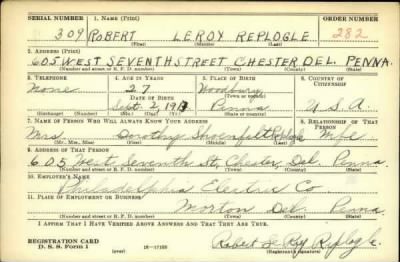 SERIAL NUMBER 1. NAME (Print) ORDER NUMBER
309 ROBERT LEROY REPLOGLE 282
(First) (Middle) (Last)
2. ADDRESS (Print)
605 WEST SEVENTH STREET CHESTER DEL. PENNA.
(Number and street or R. F. D. number) (Town) (County) (State)
3. TELEPHONE 4. AGE IN YEARS 5. PLACE OF BIRTH 6. COUNTRY OF CITIZENSHIP
None 27 Woodbury
DATE OF BIRTH (Town or county)
Sept. 2, Penna U.S.A.
(Exchange) (Number) (Mo.) (Day) (Yr.) (State or country)
7. NAME OF PERSON WHO WILL ALWAYS KNOW YOUR ADDRESS 8. RELATIONSHIP OF THAT PERSON
Mrs Dorothy Shoenfelt Replogle Wife
(Mr., Mrs., Miss) (First) (Middle) (Last)
9. ADDRESS OF THAT PERSON
605 West Seventh St, Chester, Del. Penna.
(Number and street or R. F. D. number) (Town) (County) (State)
10. EMPLOYER'S NAME
Philadelphia Electric Co
11. PLACE OF EMPLOYMENT OR BUSINESS
Morton Del. Penna
(Number and street or R. F. D. number) (Town) (County) (State)
I AFFIRM THAT I HAVE VERIFIED ABOVE ANSWERS AND THAT THEY ARE TRUE.
REGISTRATION CARD
D. S. S. Form 1 (over) 16-17105 Robert Le Roy Replogle
(Registrant's signature)